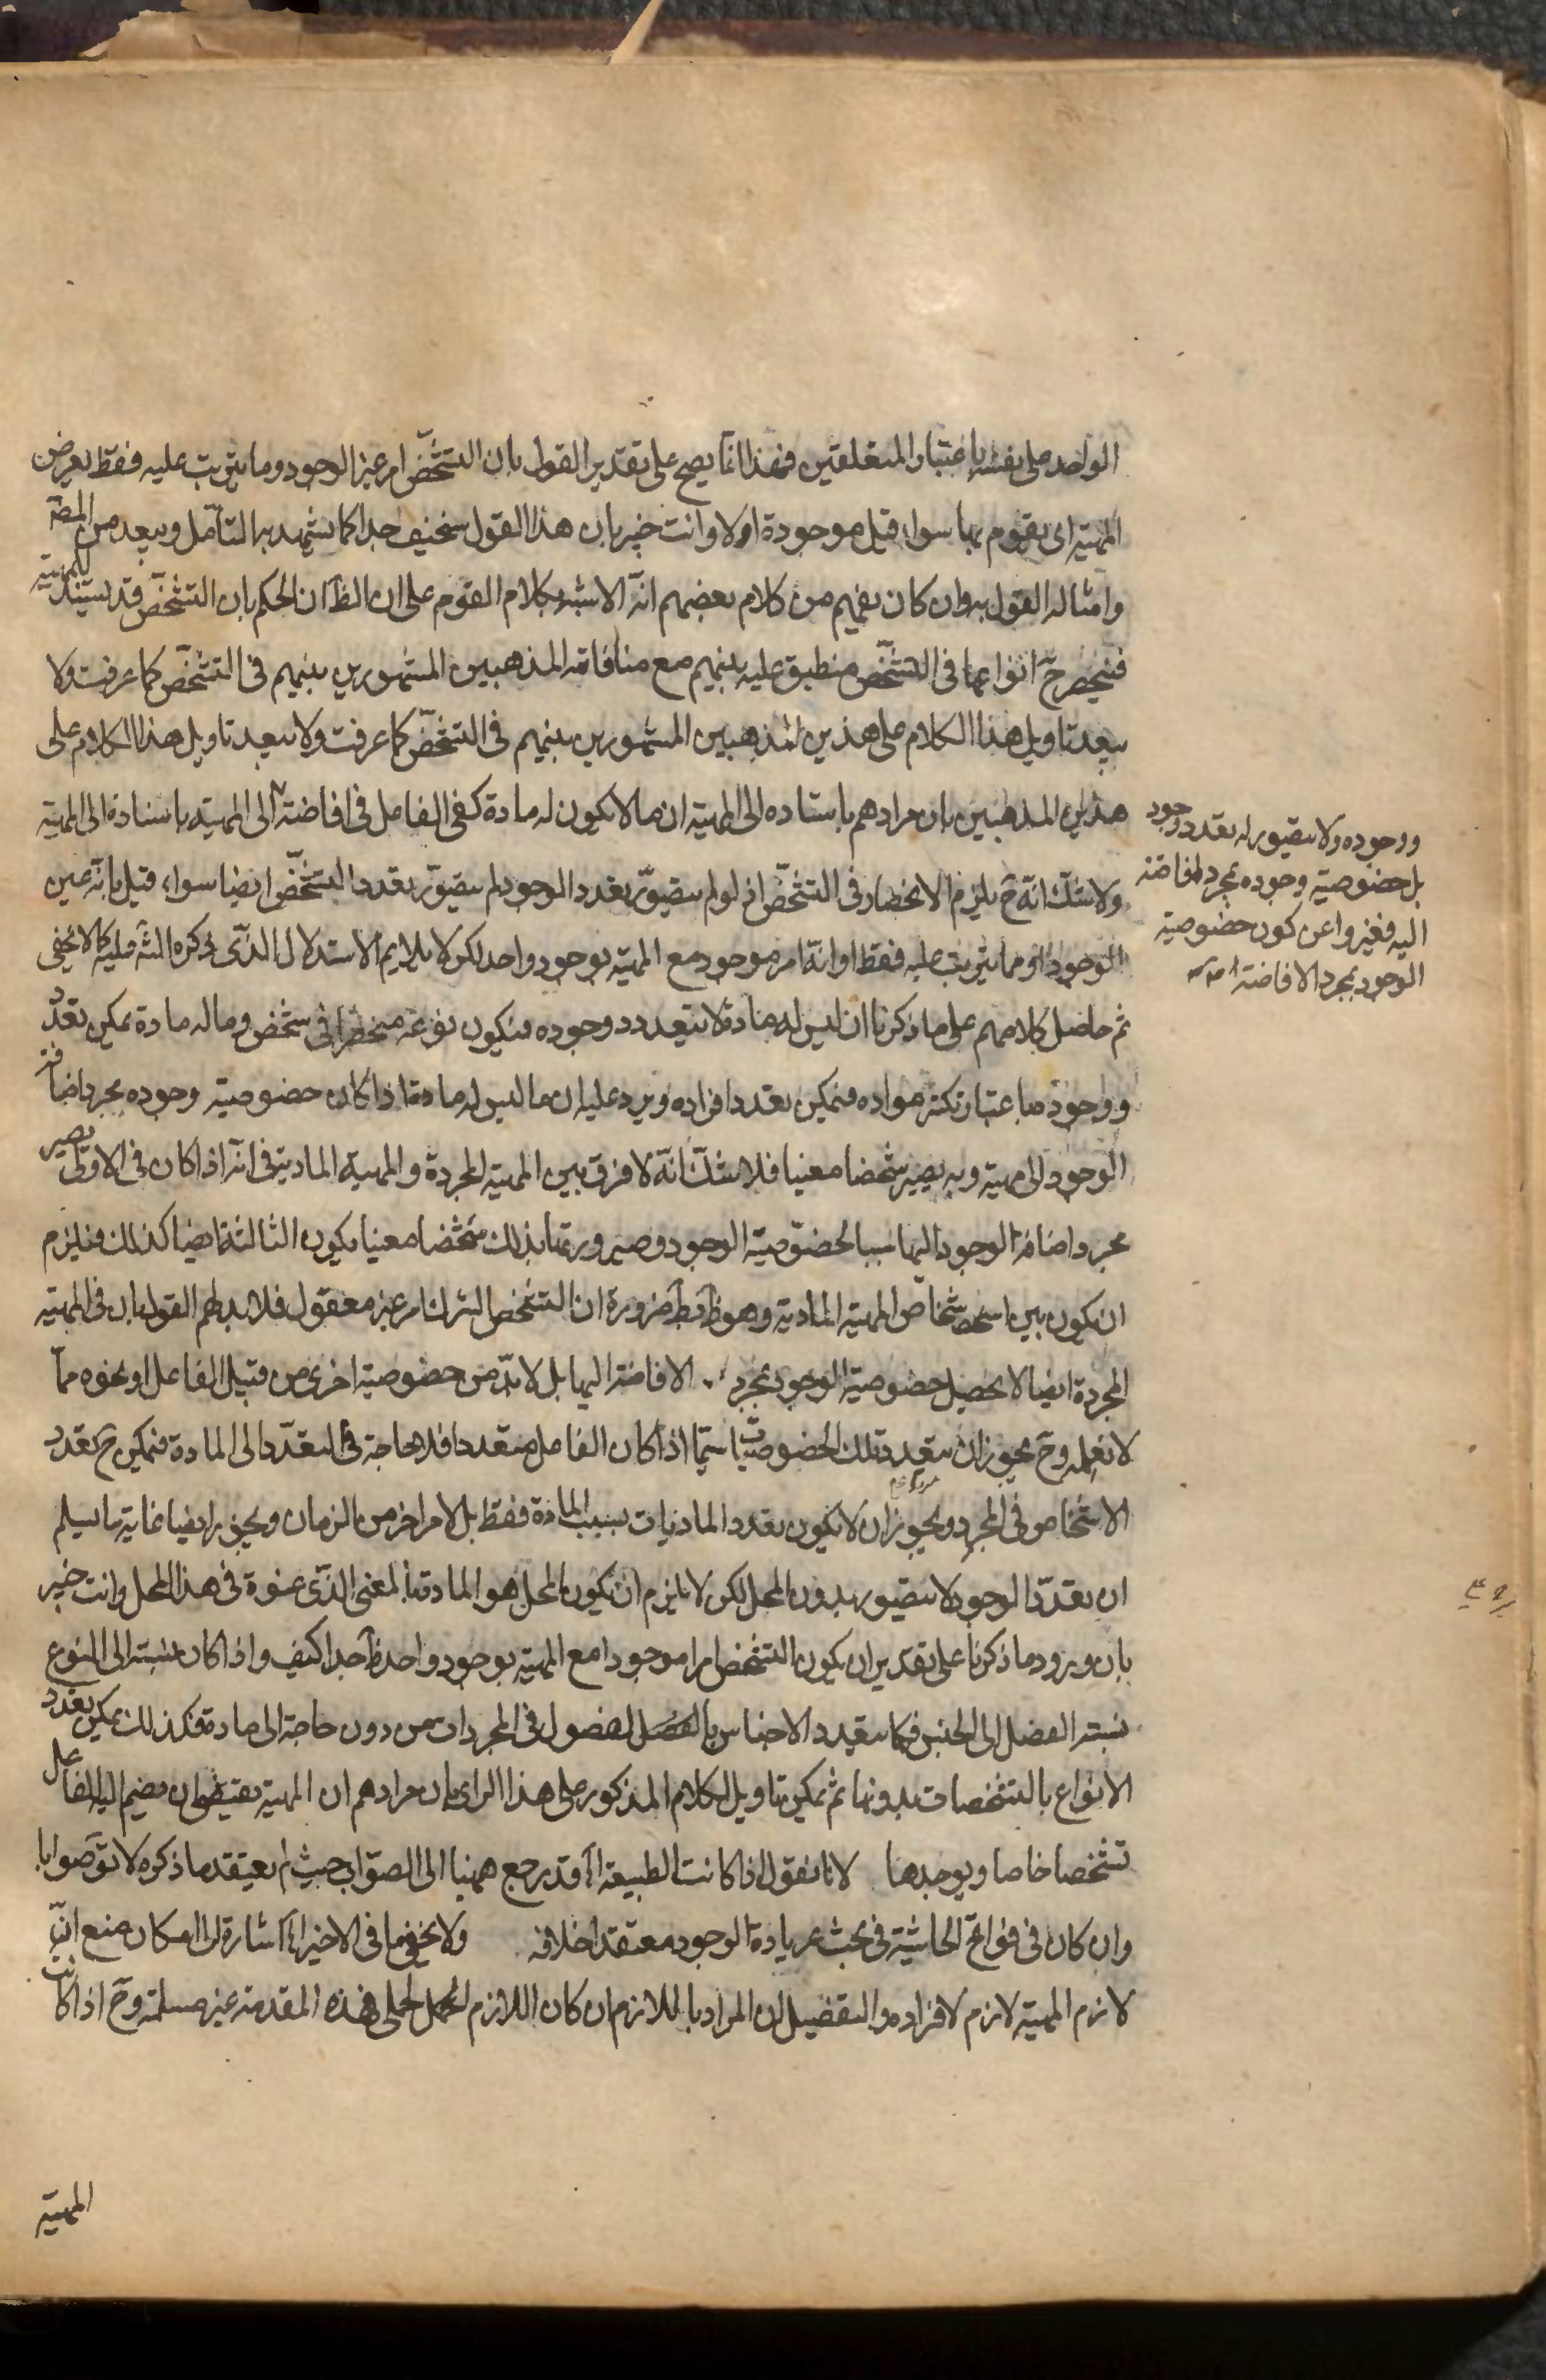 الواحد على نفسه باعتبار المتعلقين فهذا انما يصح على تقدير القول بان التشخّص امر غير الوجود وما يترتب عليه فقط يعرض
المهية اى يقوم بها سواء قيل موجودة اولا وانت خبير بان هذا القول سخيف جدا كما يشهد به التأمل ويبعد من المصّ
وامثاله القول به وان كان يفهم من كلام بعضهم انّه الاشبه بكلام القوم على ان الظّ ان الحكم بان التشخّص قد يستند للمهية
فينحصر حّ انواعها فى التشخّص منطبق عليه بينهم مع منافاته المذهبين المشهورين بينهم فى التشخّص كما عرفت ولا
يبعد تاويل هذا الكلام على هذين المذهبين المشهورين بينهم فى التشخّص كما عرفت ولا يبعد تاويل هذا الكلام على
هذين المذهبين بان مرادهم باستناده الى المهية ان ما لا يكون له مادة كفى الفاعل فى افاضته الى المهية باسناده الى المهية
ولا شك انّه حّ يلزم الانحصار فى التشخّص اذ لو لم يتصوّر تعدد الوجود لم يتصوّر تعدد التشخّص ايضا سواء قيل بانّه عين
الوجود او مما يترتب عليه فقط او انّه امر موجود مع المهية بوجود واحد لكن لا يلايم الاستدلال الذى ذكره الشّه عليه كما لا يخفى
ثم حاصل كلامهم على ما ذكرنا ان ليس له مادة لا يتعدد وجوده فيكون نوعه منحصرا فى شخص وما له مادة يمكن تعدد
ووجوده باعتبار تكثر مواده فيمكن تعدد افراده ويرد عليه ان ما ليس له مادة اذا كان خصوصية وجوده بمجرد اضافة
الوجود الى مهية وبه يصير شخصا معينا فلا شكّ انّه لا فرق بين المهية المجردة والمهية المادية فى انّه اذا كان فى الاولى يصير
بمجرد اضافة الوجود اليها سببا لخصوصية الوجود وصيرورتها بذلك شخصا معينا يكون الثالثة ايضا كذلك فيلزم
ان يكون بين اشخاص المهية المادية وهو ظّ بطّ ضرورة ان التشخص امر غير معقول فلا بد لهم القول بان فى المهية
المجردة ايضا لا يحصل خصوصية الوجود بمجرد الافاضة اليها بل لا بدّ من خصوصية اخرى من قبيل الفاعل او نحوه مما
لا نعلمه وحّ يجوز ان يتعدد تلك الخصوصيّات سيّما اذا كان الفاعل متعددا فلا حاجة فى التعدّد الى المادة فيمكن حّ تعدد
الاشخاص فى المجرد ويجوز ان لا يكون تعدد الماديات بسبب المادة فقط بل لامر اخر من الزمان ويجوز ايضا غاية ما يسلم
ان تعدّد الوجود لا يتصور بدون المحل لكن لا يلزم ان يكون المحل هو المادة بالمعنى الذى عنوه فى هذا المحل وانت خبير
بان ورود ما ذكرنا على تقدير ان يكون التشخص امرا موجودا مع المهية بوجود واحد ظّ جدا كيف واذا كان نسبته الى النوع
نسبة الفصل الى الجنس فكما يتعدد الاجناس بالفصول فى المجردات من دون حاجة الى مادة فكذلك يمكن تعدد
الانواع بالتشخصات بدونها ثم يمكن تاويل الكلام المذكور على هذا الراى بان مرادهم ان المهية يقتضى ان يضم اليه الفاعل
تشخصا خاصا ويوجدها لانا نقول اذا كانت الطبيعة اّه قد رجع ههنا الى الصواب حيث لم يعتقد ما ذكره لا توّ صوابا
وان كان فى فواتح الحاشية فى بحث زيادة الوجود معتقدا خلافه ولا يخفى ما فى الاخير اّه اشارة الى امكان منع ان
لازم المهية لازم لافراده والتفصيل ان المراد باللازم ان كان اللازم المحلى فهذه المقدمة غير مسلمة وحّ اذا كانت
ووجوده ولا يتصور له تعدد وجود
بل خصوصية وجوده بمجرد افاضته
اليه فعبروا عن كون خصوصية
الوجود بمجرد الافاضة
المهية